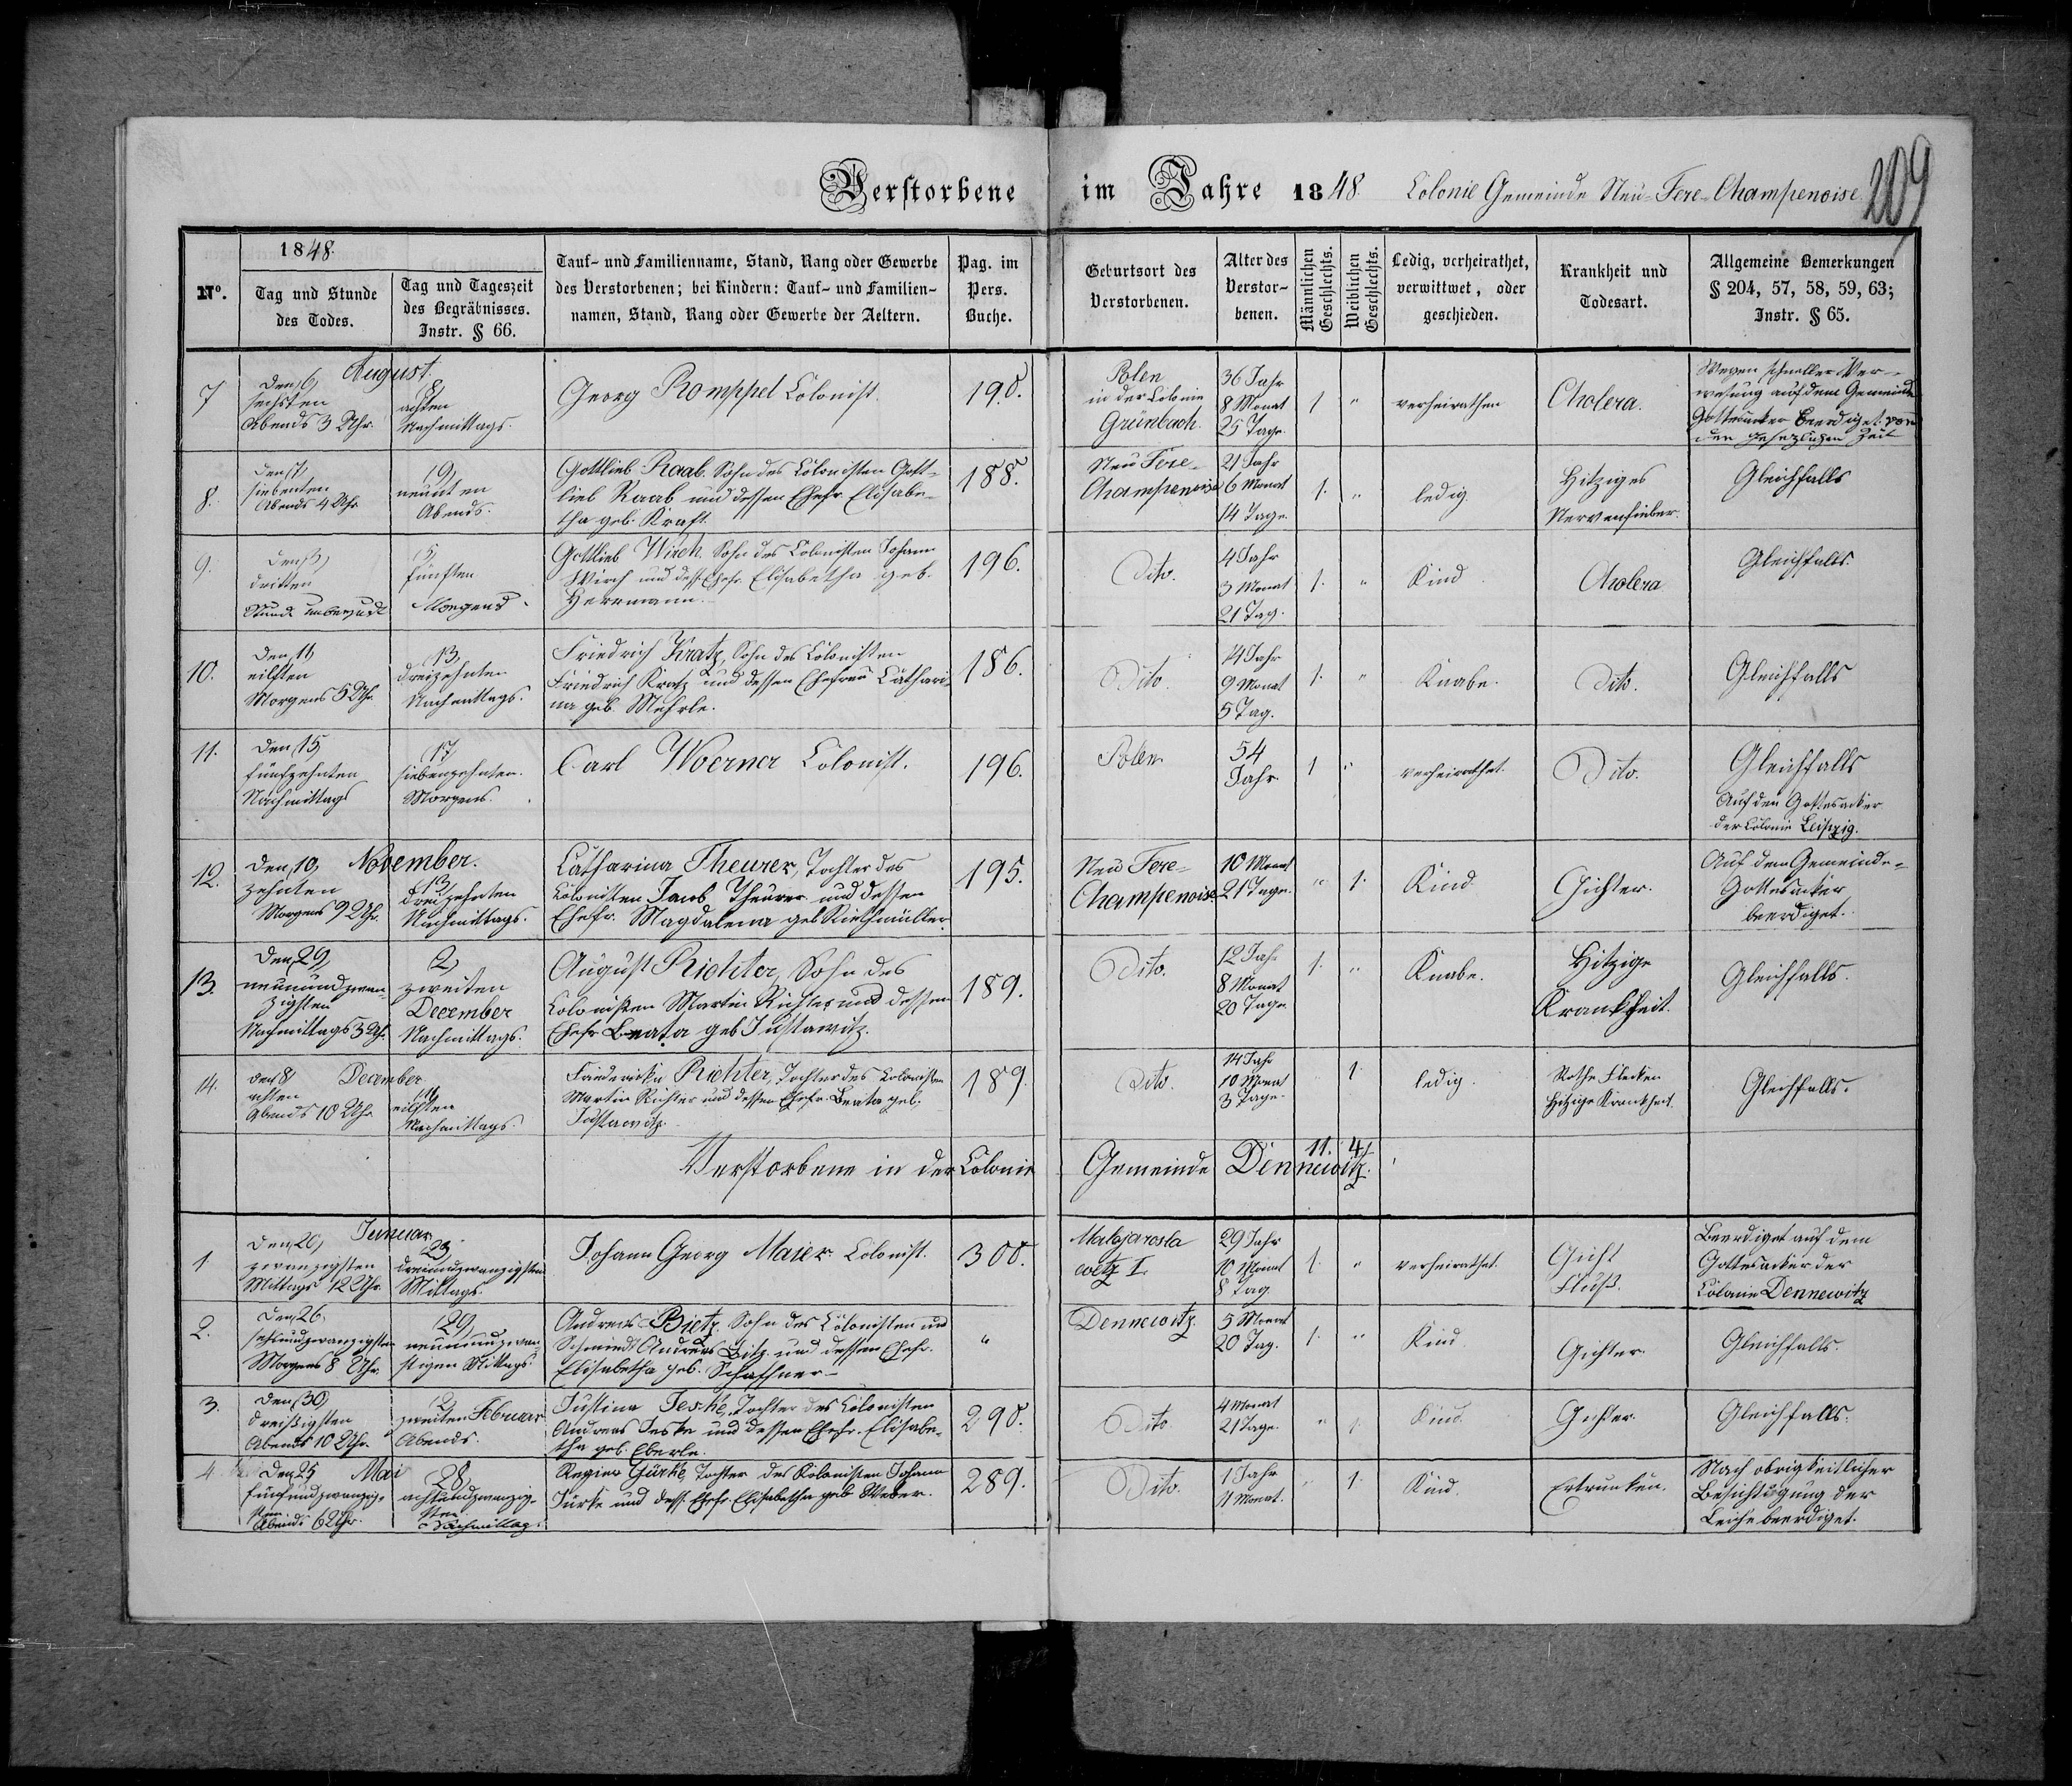 Verstorbene im Jahre 1848. Colonie Gemeinde Neu-Fere-Champenoise.
209
No.
1848.
Tag und Stunde
des Todes.
Tag und Tageszeit
des Begräbnisses.
Instr. § 66.
Tauf- und Familienname, Stand, Rang oder Gewerbe
des Verstorbenen; bei Kindern: Tauf- und Familien-
namen, Stand, Rang oder Gewerbe der Aeltern.
Pag. im
Pers.
Buche.
Geburtsort des
Verstorbenen.
Alter des
Verstor-
benen.
Männlichen
Geschlechts.
Weiblichen
Geschlechts.
Ledig, verheirathet,
verwittwet, oder
geschieden.
Krankheit und
Todesart.
Allgemeine Bemerkungen
§ 204, 57, 58, 59, 63;
Instr. § 65.
August.
7
den 6,
sechsten
Abends 3 Uhr.
8,
achten
Nachmittags.
Georg Romppel Colonist.
190.
Polen
in der Colonie
Grünbach.
36 Jahr
8 Monat
25 Tage.
1
"
verheirathen
Cholera.
Wegen schneller Ver-
wesung auf dem Gemeinde
Gottesacker beerdiget vor
der gesezlichen Zeit
8.
den 7,
siebenten
Abends 4 Uhr
9,
neunten
Abends.
Gottlieb Raab. Sohn des Colonisten Gott-
lieb Raab und dessen Ehefr. Elisabe-
tha geb. Kraft.
188.
Neu Fere-
Champenoise
21 Jahr
6 Monat
14 Tage.
1.
"
ledig.
Hitziges
Nervenfieber.
Gleichfalls
9.
den 3,
dritten
Stund unbewusst
5,
fünften
Morgends.
Gottlieb Wirch. Sohn des Colonisten Johann
Wirch und dess. Ehefr. Elisabetha geb.
Herrmann.
196.
Dito.
4 Jahr
3 Monat
21 Tag.
1.
"
Kind.
Cholera
Gleichfalls.
10.
den 11,
eilften
Morgens 5 Uhr.
13,
dreizehnten
Nachmittags.
Friedrich Kratz, Sohn des Colonisten
Friedrich Kratz und dessen Ehefrau Cathari-
na geb. Mehrle.
186.
Dito.
14 Jahr
9 Monat
5 Tag.
1.
"
Knabe.
Dito.
Gleichfalls
11.
den 15,
fünfzehnten
Nachmittags
17,
siebenzehnten.
Morgens.
Carl Woerner Colonist.
196.
Polen
54
Jahr
1
"
verheirathet.
Dito.
Gleichfalls
Auf den Gottesacker
der Colonie Leipzig.
November.
12.
den 10,
zehnten
Morgens 9 Uhr.
13,
dreizehnten
Nachmittags.
Catharina Theurer, Tochter des
Colonisten Jacob Theurer und dessen
Ehefr. Magdalena geb. Riethmüller.
195.
Neu Fere-
Champenoise
10 Monat
21 Tage.
"
1.
Kind
Gichter.
Auf dem Gemeinde-
Gottesacker
beerdiget.
13.
den 29,
neunundzwan-
zigsten
Nachmittags 3 Uhr.
2,
zweiten
December
Nachmittags.
August Richter, Sohn des
Colonisten Martin Richter und dessen
Ehefr. Beata geb. Justawitz.
189.
Dito.
12 Jahr
8 Monat
20 Tage.
1.
"
Knabe.
Hitzige
Krankheit.
Gleichfalls.
December
14.
den 8,
achten
Abends 10 Uhr
11,
eilften
Nachmittags.
Friedericka Richter, Tochter des Colonisten
Martin Richter und dessen Ehefr. Beata geb.
Justawitz.
189.
Dito.
14 Jahr
10 Monat
3 Tage.
1.
ledig.
Rothe Flecken
Hitzige Krankheit.
Gleichfalls.
11. 4.
Verstorbene in der Colonie Gemeinde Dennewitz.
Januar
1.
den 20,
zwanzigsten
Mittags 12 Uhr.
23,
dreiundzwanzigsten
Mittags.
Johann Georg Maier Colonist.
300.
Malojarosla
wetz I.
29 Jahr
10 Monat
8 Tag
1.
"
verheirathet.
Gicht
Fluß.
Beerdiget auf dem
Gottesacker der
Colonie Dennewitz
2.
den 26,
sechsundzwanzigsten
Morgens 8 Uhr.
29,
neunundzwan-
zigsten Mittags
Andreas Bietz. Sohn des Colonisten und
Schmied Andreas Bitz und dessen Ehefr.
Elisabetha geb. Schaffner.
"
Dennewitz.
5 Monat
20 Tag.
1.
"
Kind
Gichter.
Gleichfalls.
3.
den 30,
dreißigsten
Abends 10 Uhr.
2,
zweiten Februar
Abends.
Justina Jeske, Tochter des Colonisten
Andreas Jeske und dessen Ehefr. Elisabe-
tha geb. Eberle.
290.
Dito
4 Monat
21 Tage.
"
1.
Kind.
Gichter.
Gleichfalls.
4.
den 25 Mai
fünfundzwanzig-
sten
Abends 6 Uhr.
28,
achtundzwanzig-
sten
Nachmittag.
Regina Gürke, Tochter des Kolonisten Johann
Jürke und dess. Ehefr. Elisabetha geb. Weber.
289.
Dito.
1 Jahr
11 Monat.
"
1.
Kind.
Ertrunken.
Nach obrigkeitlicher
Besichtigung der
Leiche beerdiget.